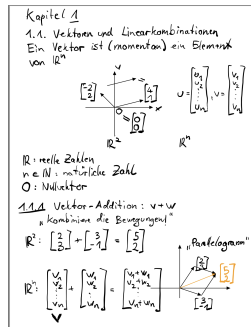 Kapitel 1
1.1. Vektoren und Linearkombinationen
Ein Vektor ist (momentan) ein Element
von ℝⁿ
y
[-2 2]
[4 1]
x
0 = [0 0]
ℝ²
u = [u₁ u₂ ⋮ uₙ], v = [v₁ v₂ ⋮ vₙ]
ℝⁿ
ℝ: reelle Zahlen
n ∈ ℕ: natürliche Zahl
0: Nullvektor
1.1.1 Vektor-Addition: v + w
"Kombiniere die Bewegungen!"
ℝ²: [2 3] + [3 -1] = [5 2]
"Parallelogramm"
[2 3]
[5 2]
[3 -1]
ℝⁿ: [v₁ v₂ ⋮ vₙ] + [w₁ w₂ ⋮ wₙ] = [v₁+w₁ v₂+w₂ ⋮ vₙ+wₙ]
v